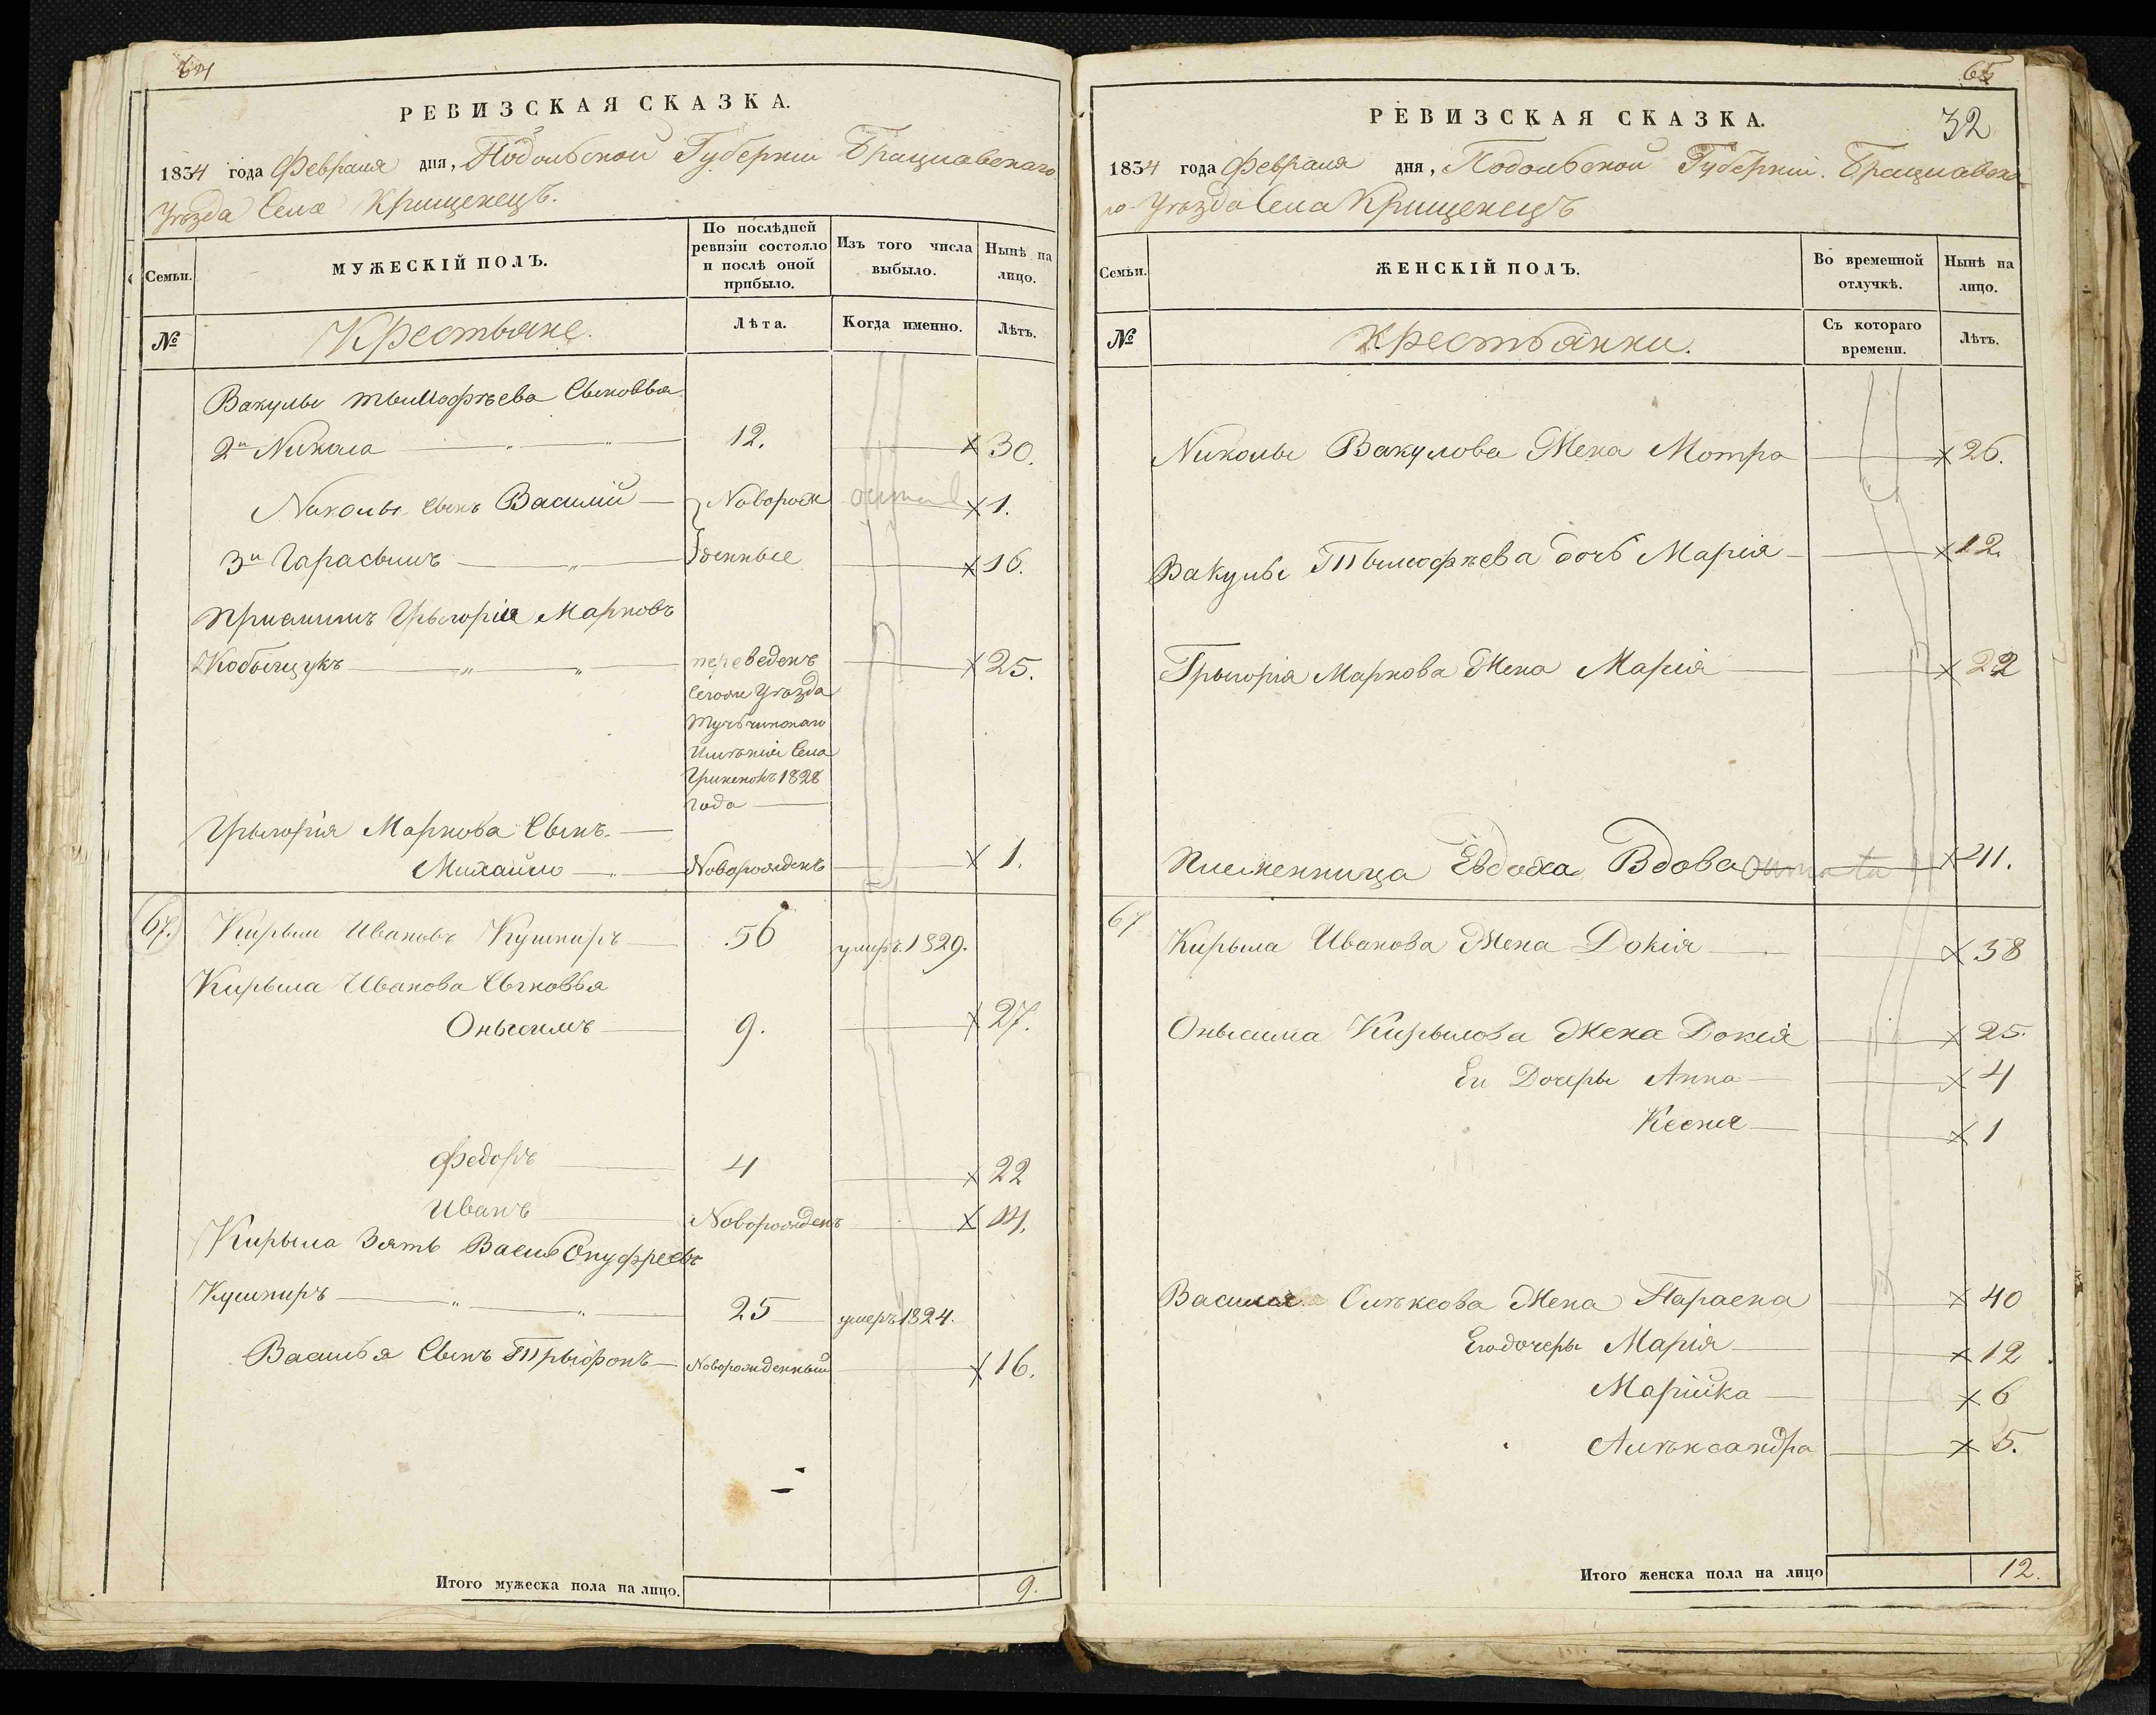 64
РЕВИЗСКАЯ СКАЗКА.
1834 года Февраля дня, Подольской Губернии Брацлавскаго
Уѣзда Села Крищенецъ.
Семьи.
МУЖЕСКІЙ ПОЛЪ.
По послѣдней ревизіи состояло и послѣ оной прибыло.
Изъ того числа выбыло.
Нынѣ на лицо.
№
Крестьяне.
Лѣта.
Когда именно.
Лѣтъ.
Вакулы Тымофѣева Сыновья
2й Никола 12. 30.
Николы сынъ ВасилійНоворож 1.
3й Гарасымъ денные 16.
Приймитъ Грыгорія Марковъ
переведенъ 25.
Уѣзда
Тульчинскаго
Имѣнія Села
1828
года
Грыгорія Маркова Сынъ
Михайло Новорожденъ 1.
67. Кирыло Ивановъ Кушниръ 56 умеръ 1829.
Кирыла Иванова Сыновья
Онысимъ 9. 27.
Федоръ 4 22
Иванъ Новорожденъ 14.
Кирыла Зять Василь Онуфреевъ
Кушниръ 25 умеръ 1824.
Василья Сынъ Трыфонъ Новорожденный 16.
Итого мужеска пола на лицо. 9.
65
32
РЕВИЗСКАЯ СКАЗКА.
1834 года Февраля дня, Подольской Губерніи. Брацлавска-
го Уѣзда Села Крищенецъ
Семьи.
ЖЕНСКІЙ ПОЛЪ.
Во временной отлучкѣ.
Нынѣ на лицо.
№
Крестьянки.
Съ котораго времени.
Лѣтъ.
Николы Вакулова Жена Мотра 26.
Вакулы Тымофѣева дочь Марія 12.
Грыгорія Маркова Жена Марія 22
Племенница Евдоха Вдова 41.
67
Кирыла Иванова Жена Докія 58
Онысима Кирылова Жена Докія 25.
Еи Дочеры Анна 4
Ксеня 1
Василя Жена Параска 40
Его дочеры Марія 12
Марійка 6
Алѣксандра 5.
Итого женска пола на лицо 12.